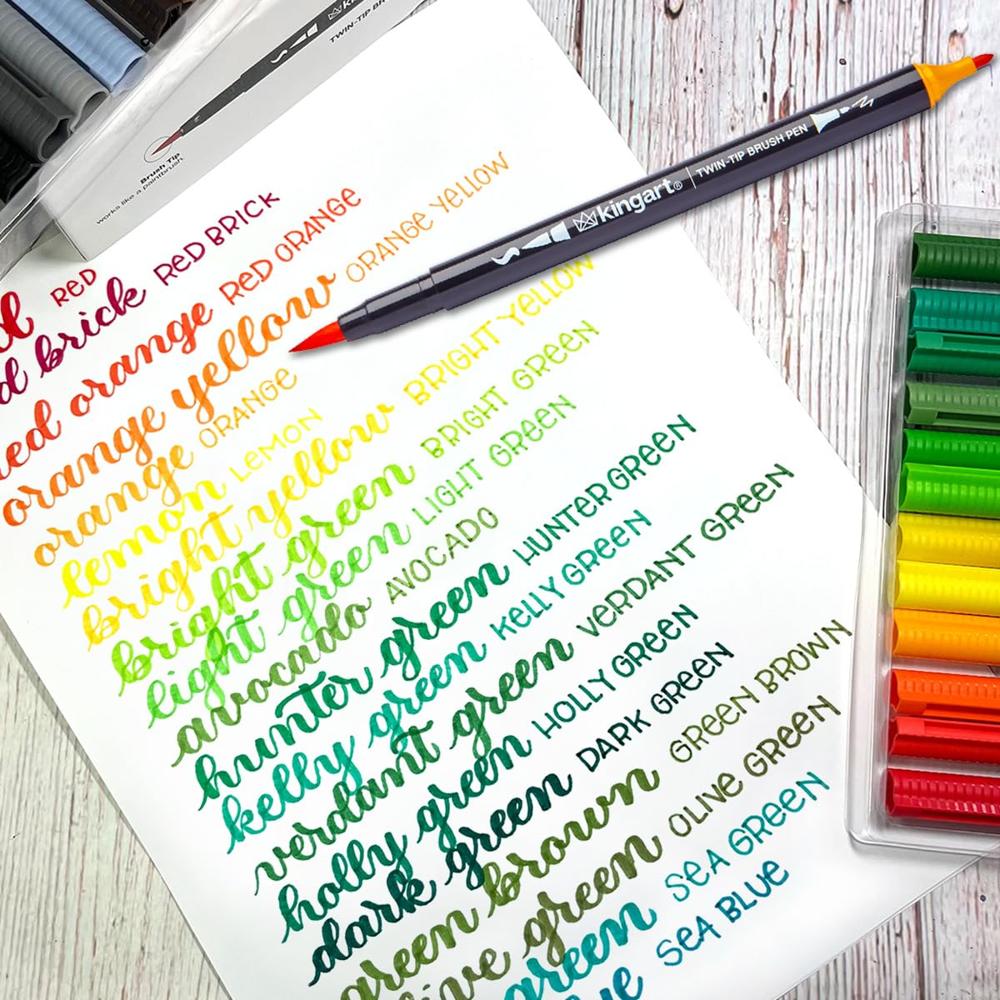 TWIN-TIP BR
Brush Tip
works like a paintbrush.
kingart® | TWIN-TIP BRUSH PEN
RED
d brick RED BRICK
red orange RED ORANGE
orange yellow ORANGE YELLOW
orange ORANGE
lemon LEMON
bright yellow BRIGHT YELLOW
bright green BRIGHT GREEN
light green LIGHT GREEN
avocado AVOCADO
hunter green HUNTER GREEN
kelly green KELLY GREEN
verdant green VERDANT GREEN
holly green HOLLY GREEN
dark green DARK GREEN
green brown GREEN BROWN
live green OLIVE GREEN
green SEA GREEN
ue SEA BLUE